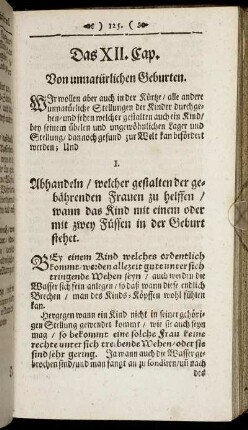 ) 125. (
Das XII. Cap.
Von unnatürlichen Geburten.
WIr wollen aber auch in der Kürtze / alle andere
unnatürliche Stellungen der Kinder durchge-
hen / und sehen welcher gestalten auch ein Kind /
bey seinem übelen und ungewöhnlichen Lager und
Stellung / dannoch gesund zur Welt kan befördert
werden; Und
I.
Abhandeln / welcher gestalten der ge-
bährenden Frauen zu helffen /
wann das Kind mit einem oder
mit zwey Füssen in der Geburt
stehet.
BEy einem Kind welches ordentlich
kommt / werden allezeit gute unter sich
tringende Wehen seyn / auch werden die
Wasser sich fein anlegen / so daß wann diese endlich
Brechen / man des Kinds-Köpffen wohl fühlen
kan.
Hergegen wann ein Kind nicht in seiner gehöri-
gen Stellung gewendet kommt / wie sie auch seyn
mag / so bekommt eine solche Frau keine
rechte unter sich treibende Wehen / oder sie
sind sehr gering. Ja wann auch die Wasser ge-
brochen sind / und man fangt an zu sondiren / um nach
des